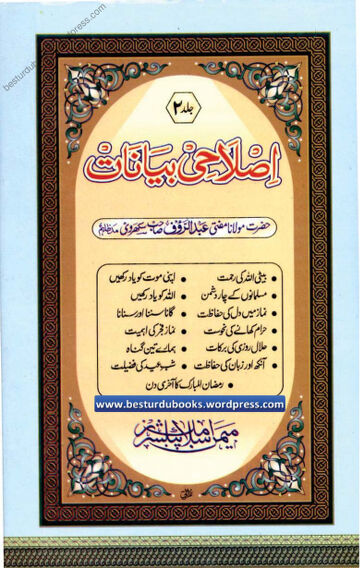 besturdubooks.wordpress.com
جلد ۲
اِصْلَاحِیْ بَیَانَات
حضرت مولانا مفتی عبدالرؤف صاحب سکھروی مدظلہم
• بیٹی اللہ کی رحمت • اپنی موت کو یاد رکھیں
• مسلمانوں کے چار دشمن • اللہ کو یاد رکھیں
• نماز میں دل کی حفاظت • گانا سننا اور سنانا
• حرام کھانے کی نحوست • نمازِ فجر کی اہمیت
• حلال روزی کی برکات • ہمارے تین گناہ
• آنکھ اور زبان کی حفاظت • شب عید کی فضیلت
• رمضان المبارک کا آخری دن
www.besturdubooks.wordpress.com
میمن اسلامک پبلشرز